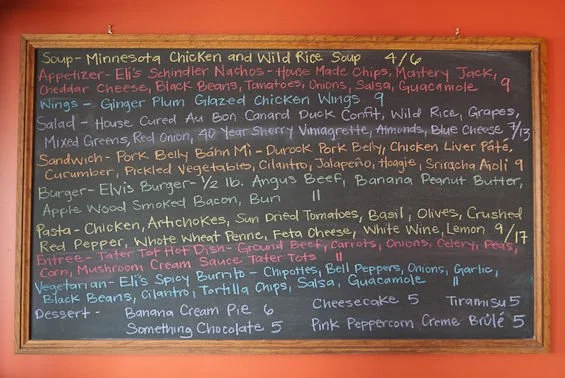 Soup - Minnesota Chicken and Wild Rice Soup 4/6
Appetizer - Eli's Schindler Nachos - House Made Chips, Montery Jack,
Cheddar Cheese, Black Beans, Tomatoes, Onions, Salsa, Guacamole 9
Wings - Ginger Plum Glazed Chicken Wings 9
Salad - House Cured Au Bon Canard Duck Confit, Wild Rice, Grapes,
Mixed Greens, Red Onion, 40 Year Sherry Vinaigrette, Almonds, Blue Cheese 7/13
Sandwich - Pork Belly Báhn Mi - Durock Pork Belly, Chicken Liver Pâté,
Cucumber, Pickled Vegetables, Cilantro, Jalapeño, Hoagie, Sriracha Aioli 9
Burger - Elvis Burger - 1/2 lb. Angus Beef, Banana Peanut Butter,
Apple Wood Smoked Bacon, Bun 11
Pasta - Chicken, Artichokes, Sun Dried Tomatoes, Basil, Olives, Crushed
Red Pepper, Whole Wheat Penne, Feta Cheese, White Wine, Lemon 9/17
Entree - Tater Tot Hot Dish - Ground Beef, Carrots, Onions, Celery, Peas,
Corn, Mushroom Cream Sauce, Tater Tots 11
Vegetarian - Eli's Spicy Burrito - Chipotles, Bell Peppers, Onions, Garlic,
Black Beans, Cilantro, Tortilla Chips, Salsa, Guacamole 11
Dessert - Banana Cream Pie 6 Cheesecake 5 Tiramisu 5
Something Chocolate 5 Pink Peppercorn Creme Brûlé 5